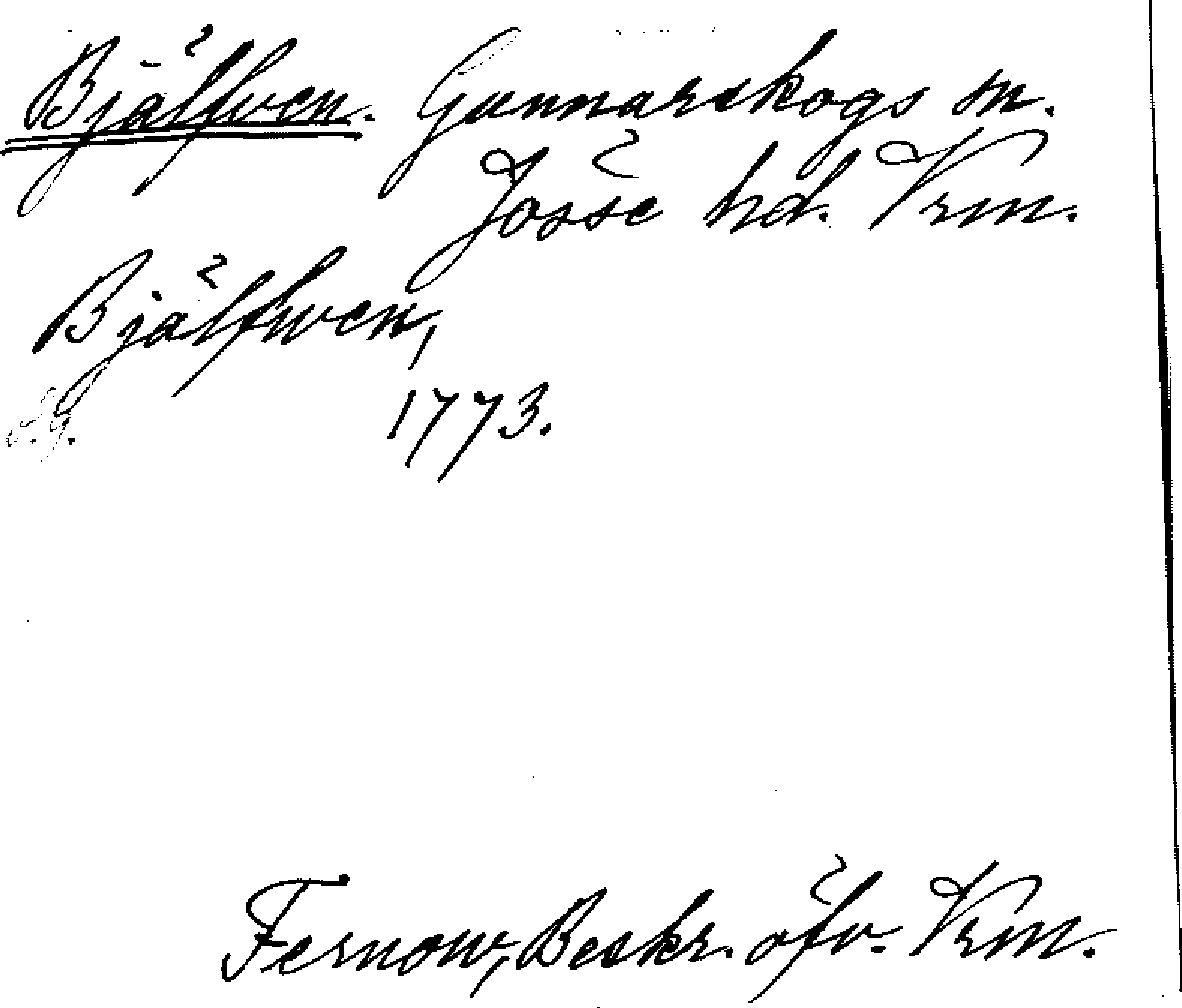 Bjälfven. Gunnarskogs sn.
Jösse hd. Vrm.
Bjälfwen,
s.g. 1773.
Fernow, Beskr. öfv. Vrm.